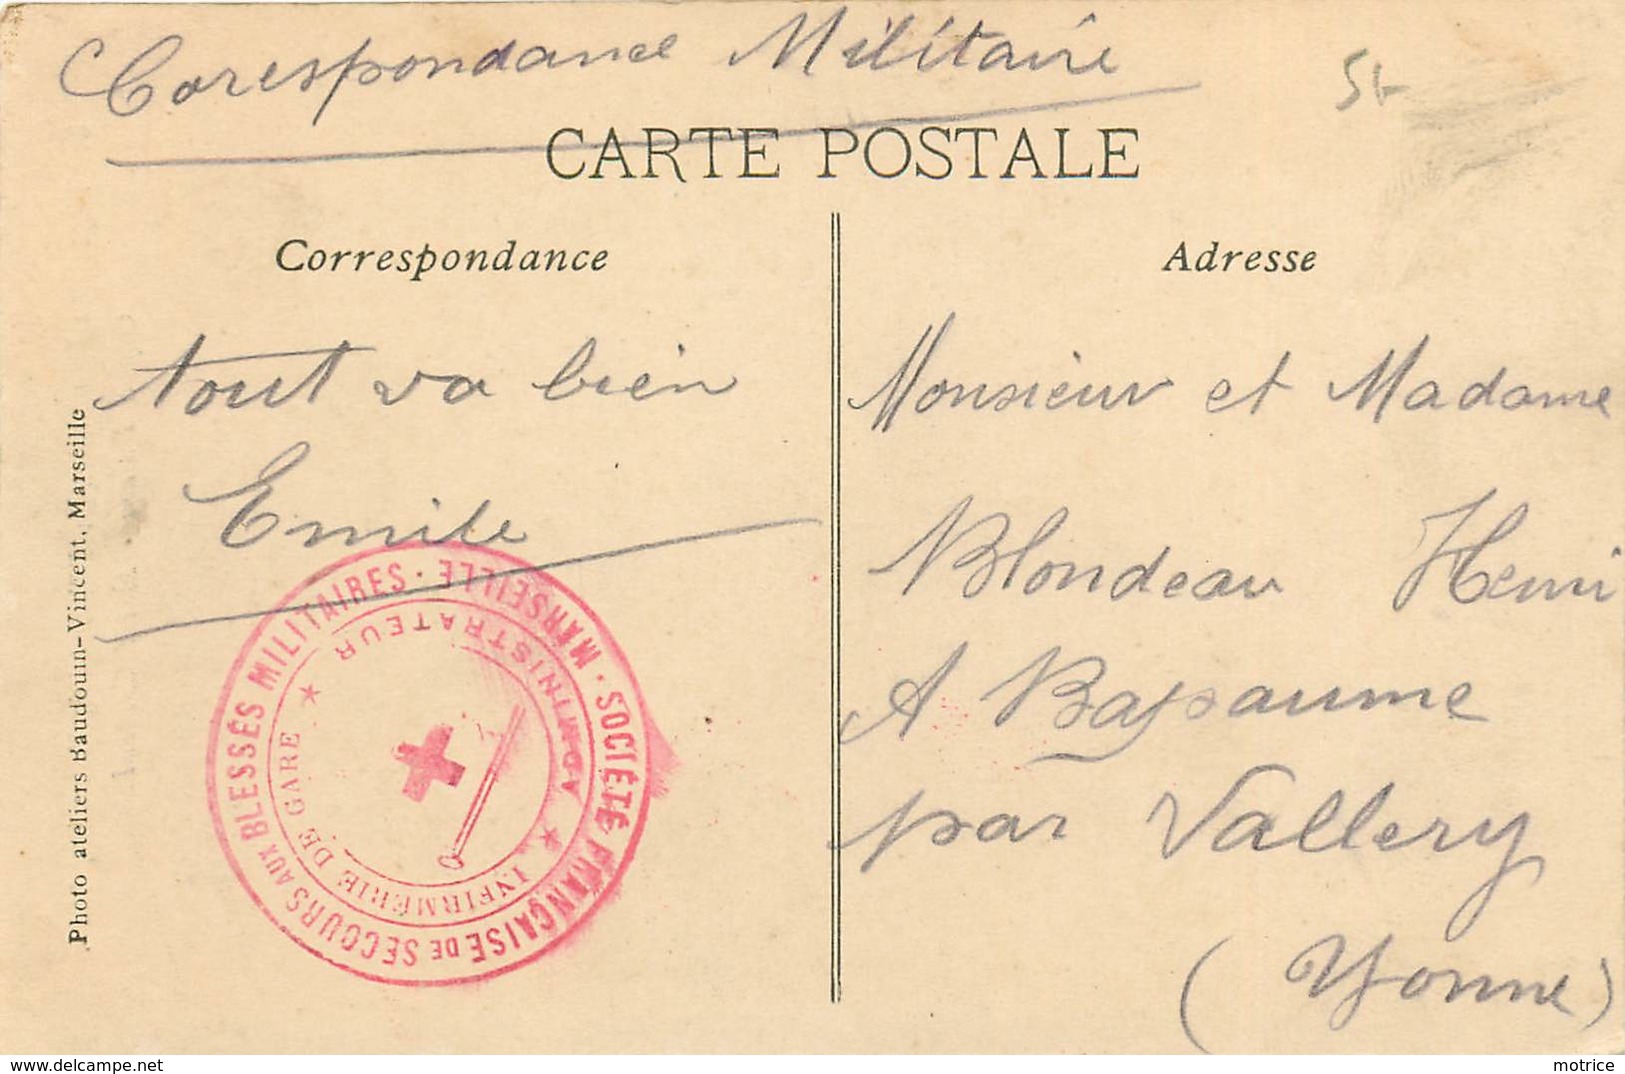 Corespondance Militaire
5f
CARTE POSTALE
Correspondance
Adresse
tout va bien
Emile
Monsieur et Madame
Blondeau Henri
A Bapaume
par Vallery
(Yonne)
Photo ateliers Baudouin-Vincent, Marseille
SOCIÉTÉ FRANÇAISE DE SECOURS AUX BLESSÉS MILITAIRES · MARSEILLE ·
INFIRMERIE DE GARE ★ ADMINISTRATEUR ★
delcampe.net
motrice